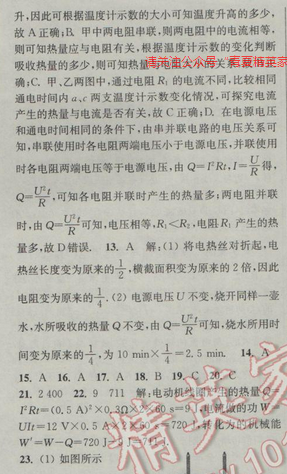 升,因此可根据温度计示数的大小可知温度升高的多少,
故 A 正确;B. 甲中两电阻串联,则两电阻中的电流相等,
则可知热量应与电阻有关,根据温度计示数的变化判断
吸收热量的多少,则可知热量与电流大小的关系
确;C. 甲、乙两图中,通过电阻 R₁ 的电流不同,比较相同
通电时间内 a、c 两支温度计示数变化情况,可探究电流
产生的热量与电流是否有关,故 C 正确;D. 在电源电压
和通电时间相同的条件下,由串并联电路的电压关系可
知,串联使用时各电阻两端电压小于电源电压,并联使用
时各电阻两端电压等于电源电压,由 Q=I²Rt,I=U/R 得,
Q=U²t/R,可知各电阻并联时产生的热量多;两电阻并联
时,由 Q=U²t/R 可知,电压相等,R₁<R₂,电阻 R₁ 产生的热
量多,故 D 错误. 13. A 解:(1) 将电热丝对折起,电
热丝长度变为原来的 1/2,横截面积变为原来的 2 倍,因此
电阻变为原来的 1/4. (2) 电源电压 U 不变,烧开同样一壶
水,水所吸收的热量 Q 不变,由 Q=U²t/R 可知,烧水所用时
间变为原来的 1/4,为 10 min×1/4=2.5 min. 14. A
15. A 16. A 17. A 18. B 19. C 20. C
21. 2 400 22. 9 711 解:电动机线圈产生的热量 Q=
I²Rt=(0.5 A)²×0.3Ω×2×60 s=9 J,电流做的功 W=
UIt=12 V×0.5 A×2×60 s=720 J,转化为的机械能
W'=W-Q=720 J-9 J=711 J.
23. (1) 如图所示
精英家
101